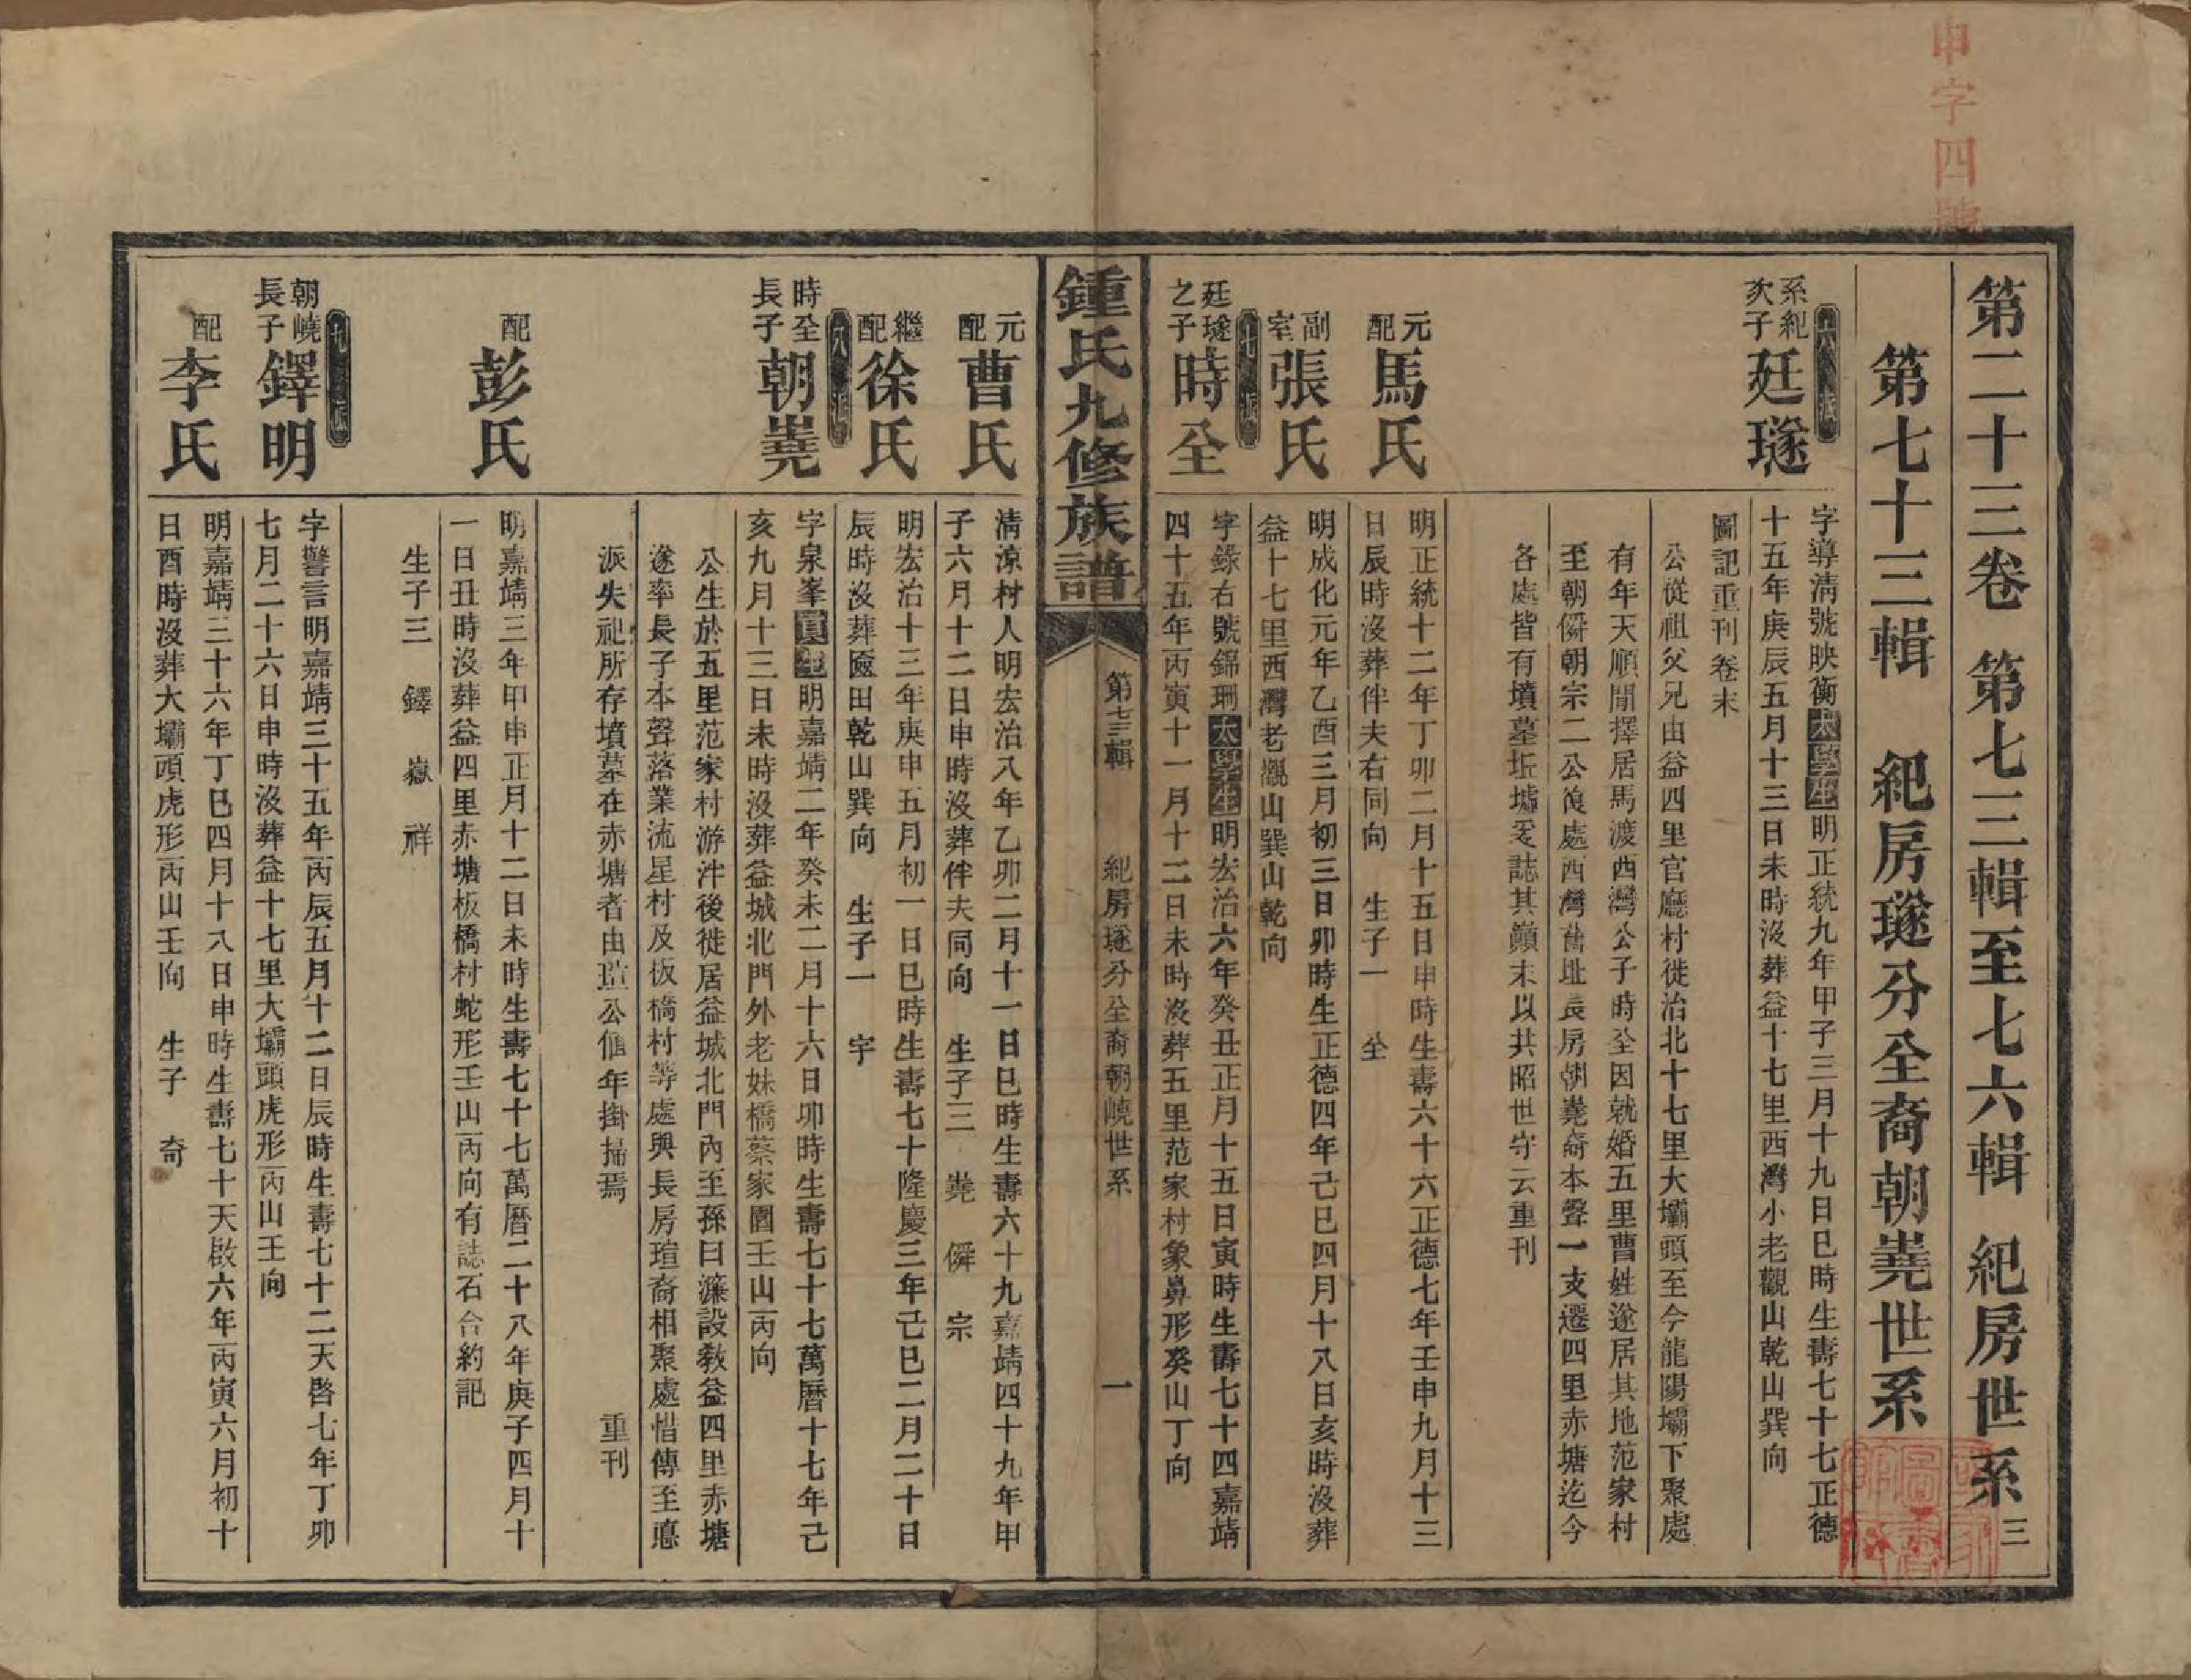 申字四號
第二十三卷 第七三輯至七六輯 紀房世系 三
第七十三輯 紀房璲分全裔朝嶤世系
六派
系紀次子 廷璲
字導淸號映衡太學生明正統九年甲子三月十九日巳時生壽七十七正德
十五年庚辰五月十三日未時沒葬益十七里西灣小老觀山乾山巽向
圖記重刊卷末
公從祖父兄由益四里官廳村徙治北十七里大壩頭至今龍陽壩下聚處
有年天順間擇居馬渡西灣公子時全因就婚五里曹姓遂居其地范家村
至朝僯朝宗二公復處西灣舊址長房朝嶤裔本聲一支遷四里赤塘迄今
各處皆有墳墓坵墟爰誌其顚末以共昭世守云重刊
元配 馬氏
明正統十二年丁卯二月十五日申時生壽六十六正德七年壬申九月十三
日辰時沒葬伴夫右同向 生子一 全
副室 張氏
明成化元年乙酉三月初三日卯時生正德四年己巳四月十八日亥時沒葬
益十七里西灣老觀山巽山乾向
七派
廷璲之子 時全
字錄右號錦珊太學生明宏治六年癸丑正月十五日寅時生壽七十四嘉靖
四十五年丙寅十一月十二日未時沒葬五里范家村象鼻形癸山丁向
鍾氏九修族譜
第七三輯 紀房璲分全裔朝嶢世系 一
元配 曹氏
淸涼村人明宏治八年乙卯二月十一日巳時生壽六十九嘉靖四十九年甲
子六月十二日申時沒葬伴夫同向 生子三 嶤 僯 宗
繼配 徐氏
明宏治十三年庚申五月初一日巳時生壽七十隆慶三年己巳二月二十日
辰時沒葬區田乾山巽向 生子一 宇
八派
時全長子 朝嶤
字泉峯貢生明嘉靖二年癸未二月十六日卯時生壽七十七萬曆十七年己
亥九月十三日未時沒葬益城北門外老妹橋蔡家園壬山丙向
公生於五里范家村游泮後徙居益城北門內至孫曰濂設敎益四里赤塘
遂率長子本聲落業流星村及板橋村等處與長房瑄裔相聚處惜傳至憲
派失祀所存墳墓在赤塘者由瑄公値年掛掃焉 重刊
配 彭氏
明嘉靖三年甲申正月十二日未時生壽七十七萬曆二十八年庚子四月十
一日丑時沒葬益四里赤塘板橋村蛇形壬山丙向有誌石合約記
生子三 鐸 嶽 祥
九派
朝嶢長子 鐸明
字警言明嘉靖三十五年丙辰五月十二日辰時生壽七十二天啓七年丁卯
七月二十六日申時沒葬益十七里大壩頭虎形丙山壬向
配 李氏
明嘉靖三十六年丁巳四月十八日申時生壽七十天啟六年丙寅六月初十
日酉時沒葬大壩頭虎形丙山壬向 生子 奇